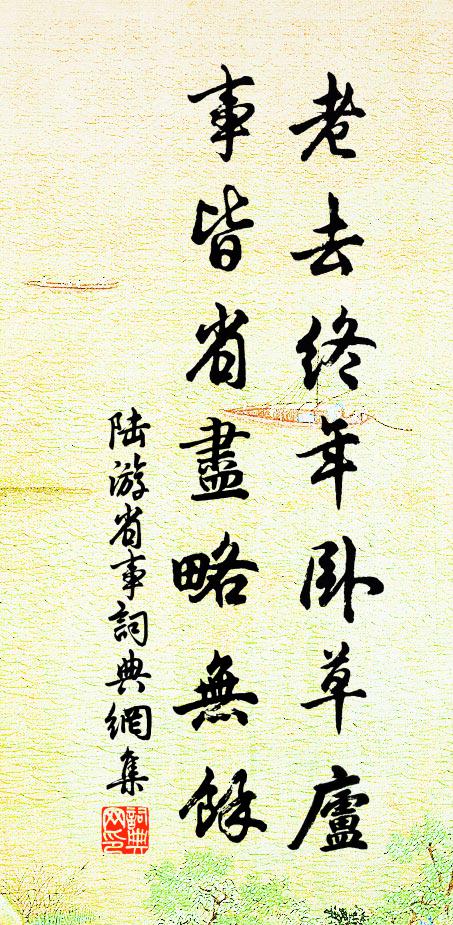 老去終年臥草廬
事皆省盡略無餘
陆游省事詞典網集
詞典
网印